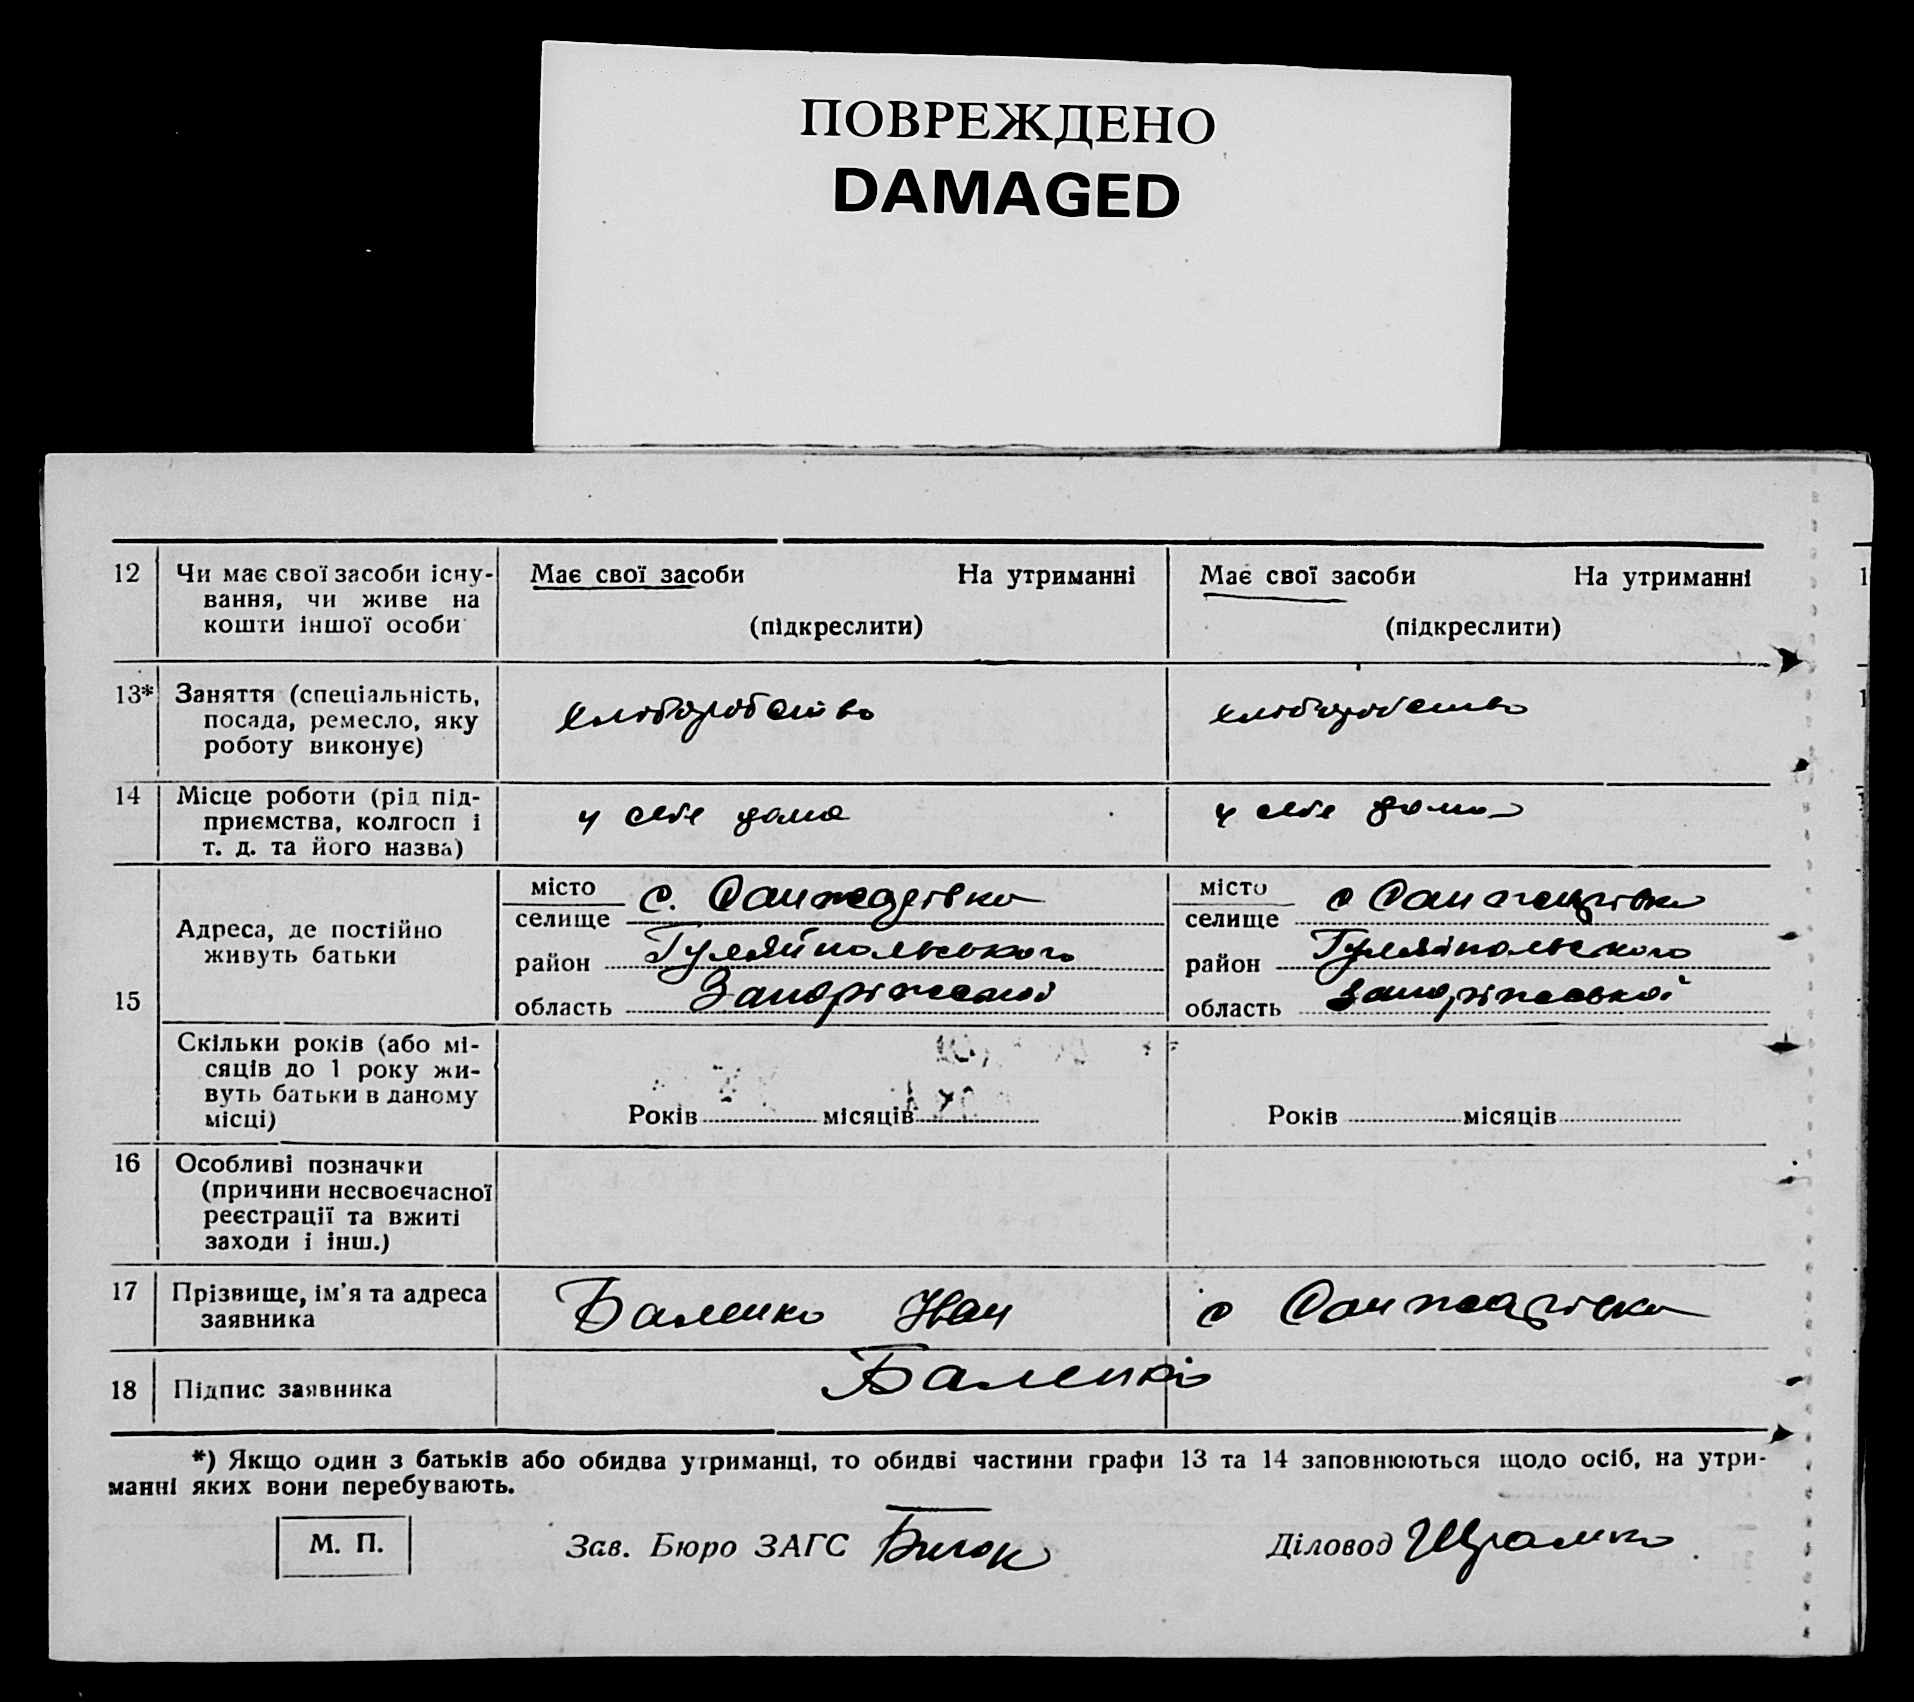 ПОВРЕЖДЕНО
DAMAGED
12 Чи має свої засоби існу- Має свої засоби На утриманні Має свої засоби На утриманні
вання, чи живе на
кошти іншої особи (підкреслити) (підкреслити)
13* Заняття (спеціальність,
посада, ремесло, яку хліборобство хліборобство
роботу виконує)
14 Місце роботи (рід під-
приємства, колгосп і у себе дома у себе дома
т. д. та його назва)
місто с. Санжарівка місто с Санжарівка
селище селище
Адреса, де постійно
живуть батьки
район Гуляйпольського район Гуляйпольського
15 область Запоріжської область Запоріжської
Скільки років (або мі-
сяців до 1 року жи-
вуть батьки в даному
місці) Років місяців Років місяців
16 Особливі позначки
(причини несвоєчасної
реєстрації та вжиті
заходи і інш.)
17 Прізвище, ім'я та адреса Баленко Иван с Санжарівка
заявника
18 Підпис заявника Баленко
*) Якщо один з батьків або обидва утриманці, то обидві частини графи 13 та 14 заповнюються щодо осіб, на утри-
манні яких вони перебувають.
М. П. Зав. Бюро ЗАГС Діловод Шрамко